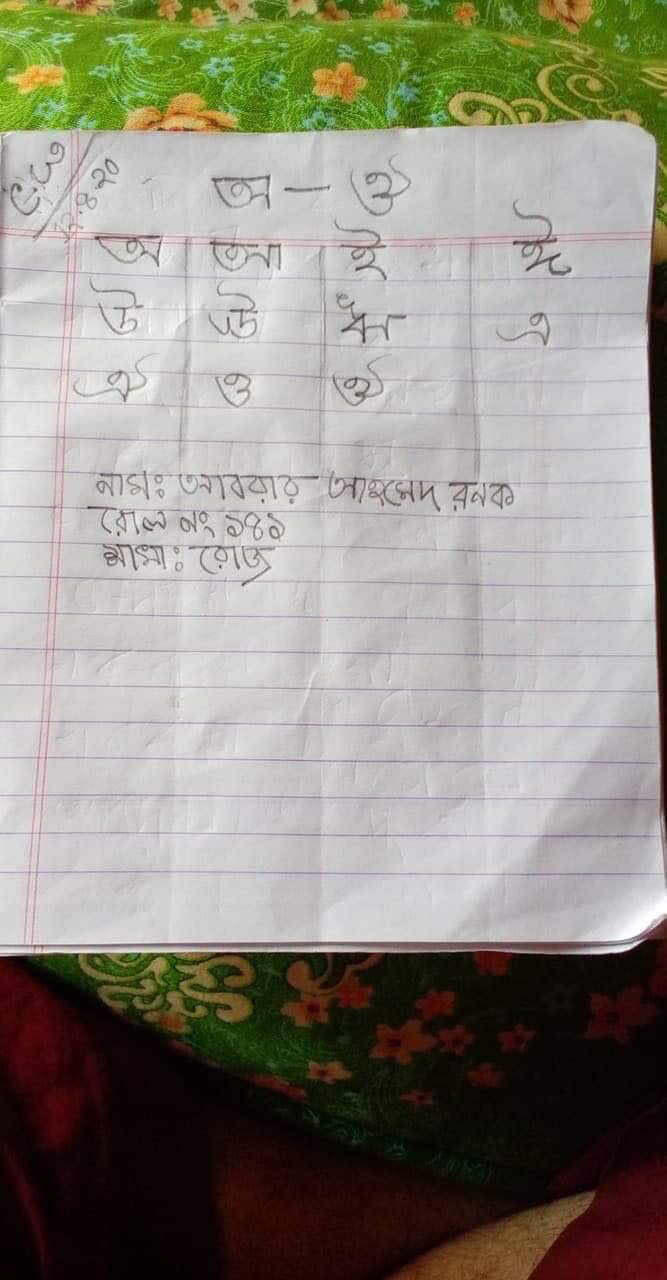 অ – ঔ
অ আ ই ঈ
উ ঊ ঋ এ
ঐ ও ঔ
নামঃ আবরার আহমেদ রনক
রোল নং ১৪১
শাখাঃ রোজ